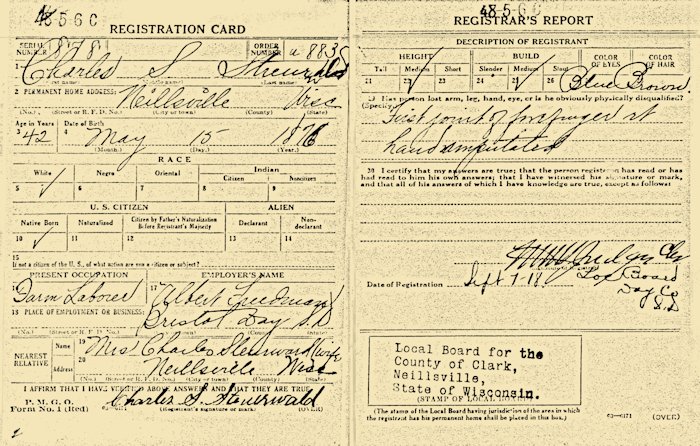 4856C
REGISTRATION CARD
SERIAL NUMBER 878 ORDER NUMBER a 883
1 Charles S Steurwald
(First name) (Middle name) (Last name)
2 PERMANENT HOME ADDRESS:
Neillsville Wisc
(No.) (Street or R. F. D. No.) (City or town) (County) (State)
Age in Years Date of Birth
3 42 4 May 15 1876
(Month.) (Day.) (Year.)
RACE
White Negro Oriental Indian
Citizen Noncitizen
5 ✓ 6 7 8 9
U. S. CITIZEN ALIEN
Native Born Naturalized Citizen by Father's Naturalization Before Registrant's Majority Declarant Non-declarant
10 ✓ 11 12 13 14
15
If not a citizen of the U. S., of what nation are you a citizen or subject?
PRESENT OCCUPATION EMPLOYER'S NAME
16 Farm Laborer 17 Albert
18 PLACE OF EMPLOYMENT OR BUSINESS:
Bristol Day S.D
(No.) (Street or R. F. D. No.) (City or town) (County) (State)
NEAREST RELATIVE
Name 19 Mrs Charles Steurwald Wife
Address 20 Neillsville Wisc
(No.) (Street or R. F. D. No.) (City or town) (County) (State)
I AFFIRM THAT I HAVE VERIFIED ABOVE ANSWERS AND THAT THEY ARE TRUE
P. M. G. O.
Form No. 1 (Red) Charles S. Steurwald
(Registrant's signature or mark) (OVER)
4856C
REGISTRAR'S REPORT
DESCRIPTION OF REGISTRANT
HEIGHT BUILD COLOR OF EYES COLOR OF HAIR
Tall Medium Short Slender Medium Stout
21 22 ✓ 23 24 25 ✓ 26 27 Blue 28 Brown
29 Has person lost arm, leg, hand, eye, or is he obviously physically disqualified?
(Specify.)
First joint of forefinger rt
hand amputated
30 I certify that my answers are true; that the person registered has read or has
had read to him his own answers; that I have witnessed his signature or mark,
and that all of his answers of which I have knowledge are true, except as follows:
Date of Registration Sept
Board
Day Co
S.D
Local Board for the
County of Clark,
Neillsville,
State of Wisconsin.
(STAMP OF LOCAL BOARD)
(The stamp of the Local Board having jurisdiction of the area in which
the registrant has his permanent home shall be placed in this box.)
03—6171 (OVER)